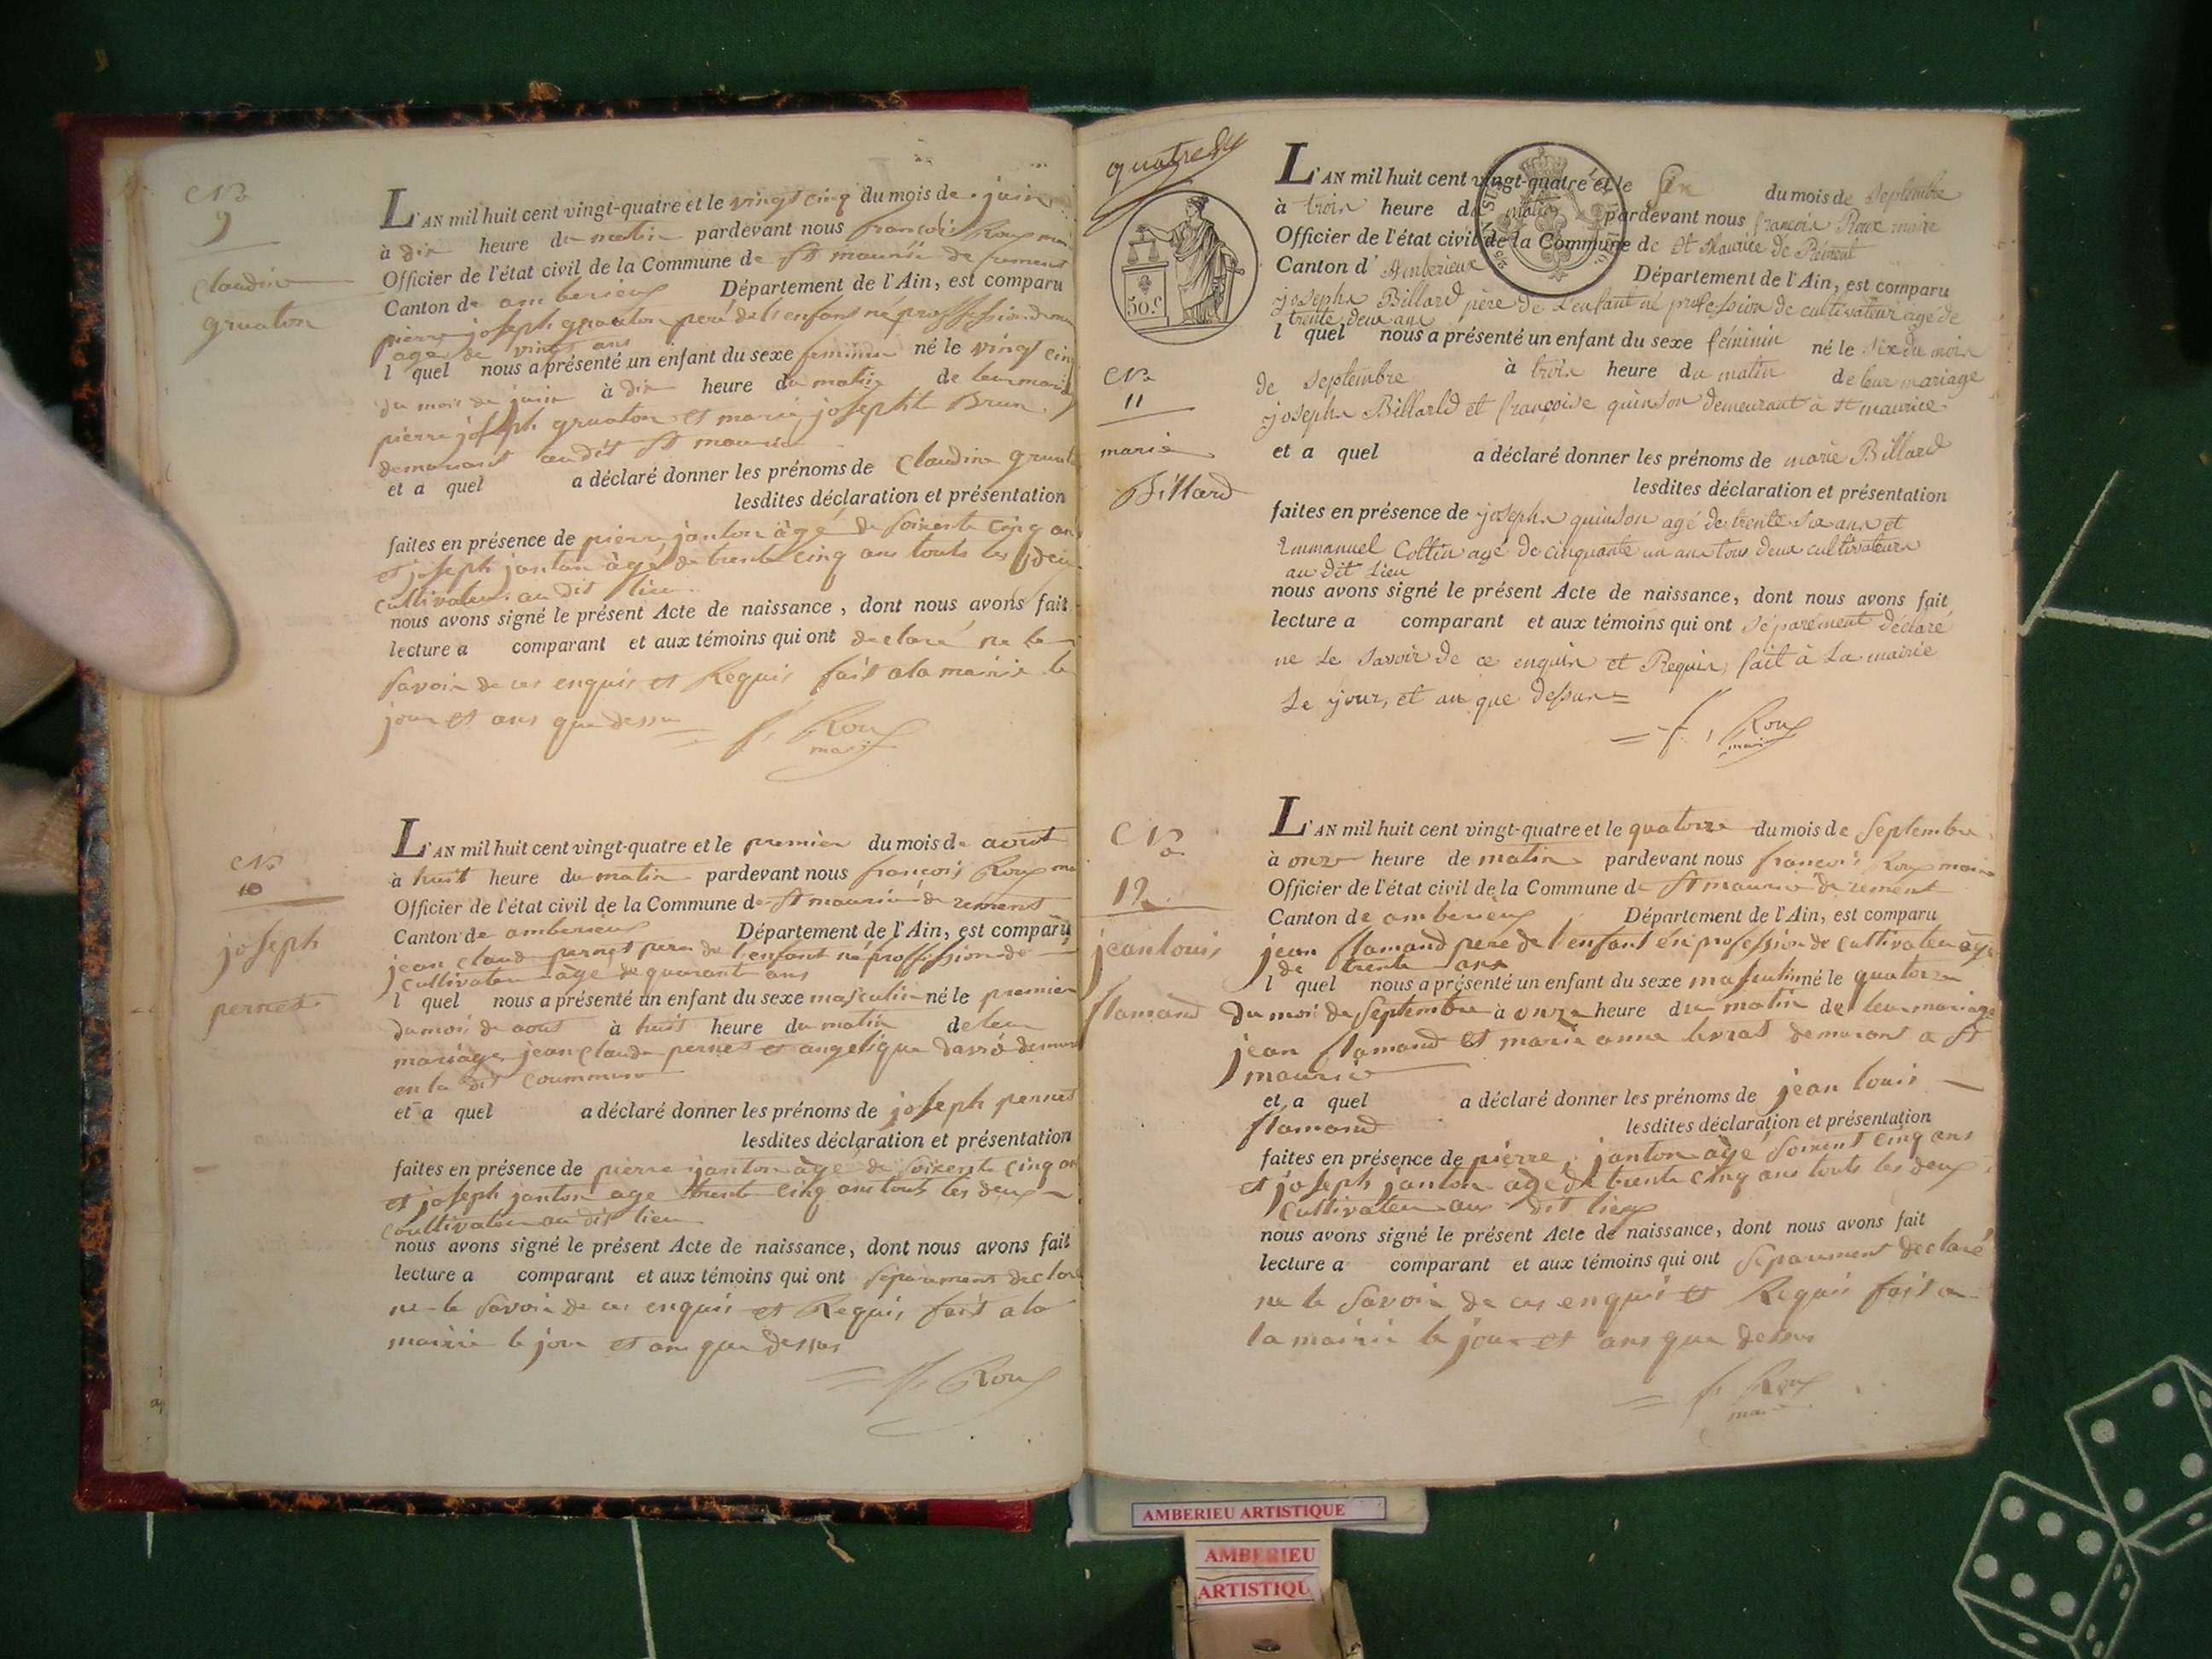 No
9
Claudine
gruaton
L'AN mil huit cent vingt-quatre et le vingt cinq du mois de juin
à dix heure du matin pardevant nous françois Roux
Officier de l'état civil de la Commune de St maurice de rement
Canton de amberieux Département de l'Ain, est comparu
pierre joseph gruaton peré de l'enfant né proffession de
age de vingt ans
l quel nous a présenté un enfant du sexe feminin né le vingt cinq
du mois de juin à dix heure du matin de leur
pierre joseph gruaton et marie josephte Brun
demeurant au dit St maurice
et a quel a déclaré donner les prénoms de Claudine
lesdites déclaration et présentation
faites en présence de pierre janton àgé de soixente cinq
et joseph janton àgé de trente cinq ans touts les deux
cultivateur au dit lieu
nous avons signé le présent Acte de naissance, dont nous avons fait
lecture a comparant et aux témoins qui ont declaré ne le
savoir de ces enquis et Requis fait a la mairie le
jour et ans que dessu
f. Roux
maire
No
10
joseph
pernet
L'AN mil huit cent vingt-quatre et le premier du mois de aout
à huit heure du matin pardevant nous françois Roux
Officier de l'état civil de la Commune de St maurice de rement
Canton de amberieux Département de l'Ain, est comparu
jean claude pernet pere de l'enfant né proffission de
cultivateur àge de quarant ans
l quel nous a présenté un enfant du sexe masculin né le premier
du mois de aout à huit heure du matin de leur
mariage jean claude pernet et angelique
en la dit coummune
et a quel a déclaré donner les prénoms de joseph pernet
lesdites déclaration et présentation
faites en présence de pierre janton àge de soixente cinq
et joseph janton age trente cinq ans touts les deux
coultivateur au dit lieu
nous avons signé le présent Acte de naissance, dont nous avons fait
lecture a comparant et aux témoins qui ont séparement
ne le savoir de ces enquis et Requis fait a la
mairie le jour et ans que dessus
f. Roux
50.C
No
11
marie
Billard
L'AN mil huit cent vingt-quatre et le six du mois de Septembre
à trois heure du matin pardevant nous françois Roux maire
Officier de l'état civil de la Commune de St Maurice de Rément
Canton d' Amberieux Département de l'Ain, est comparu
josephe Billard père de L'enfant né profession de cultivateur agé de
trente deux ans
l quel nous a présenté un enfant du sexe féminin né le Six du mois
de Septembre à trois heure du matin de leur mariage
josephe Billarld et françoise quinson demeurant à St maurice
et a quel a déclaré donner les prénoms de marie Billard
lesdites déclaration et présentation
faites en présence de josephe quinson agé de trente six ans et
Emmanuel Cottin agé de cinquante un ans tous deux cultivateurs
au dit Lieu
nous avons signé le présent Acte de naissance, dont nous avons fait
lecture a comparant et aux témoins qui ont séparément déclaré
ne le savoir de ce enquis et Requis, fait à La mairie
Le jour, et an que dessus
f. Roux
maire
No
12
jean louis
flamand
L'AN mil huit cent vingt-quatre et le quatorze du mois de Septembre
à onze heure de matin pardevant nous francois Roux maire
Officier de l'état civil de la Commune de St maurice de rement
Canton de amberieux Département de l'Ain, est comparu
jean flamand peré de l'enfant profession de cultivateur àge
de trente ans
l quel nous a présenté un enfant du sexe masculin né le quatorze
du moi de Septembre à onze heure du matin de leur mariage
jean flamand et marie anne livrat demurant a St
maurice
et a quel a déclaré donner les prénoms de jean louis
flamand
lesdites déclaration et présentation
faites en présence de piérre janton àgé soixent cinq ans
et joseph janton age de trente cinq ans touts les deux
cultivateur au dit lieux
nous avons signé le présent Acte de naissance, dont nous avons fait
lecture a comparant et aux témoins qui ont separement declaré
ne le savoir de ces enquis et Requis fait a
la mairie le jour et ans que dessus
f. Roux
maire
AMBERIEU ARTISTIQUE
AMBERIEU
ARTISTIQU